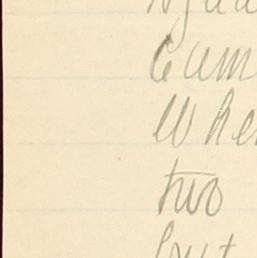 Cum
Whe
two
but